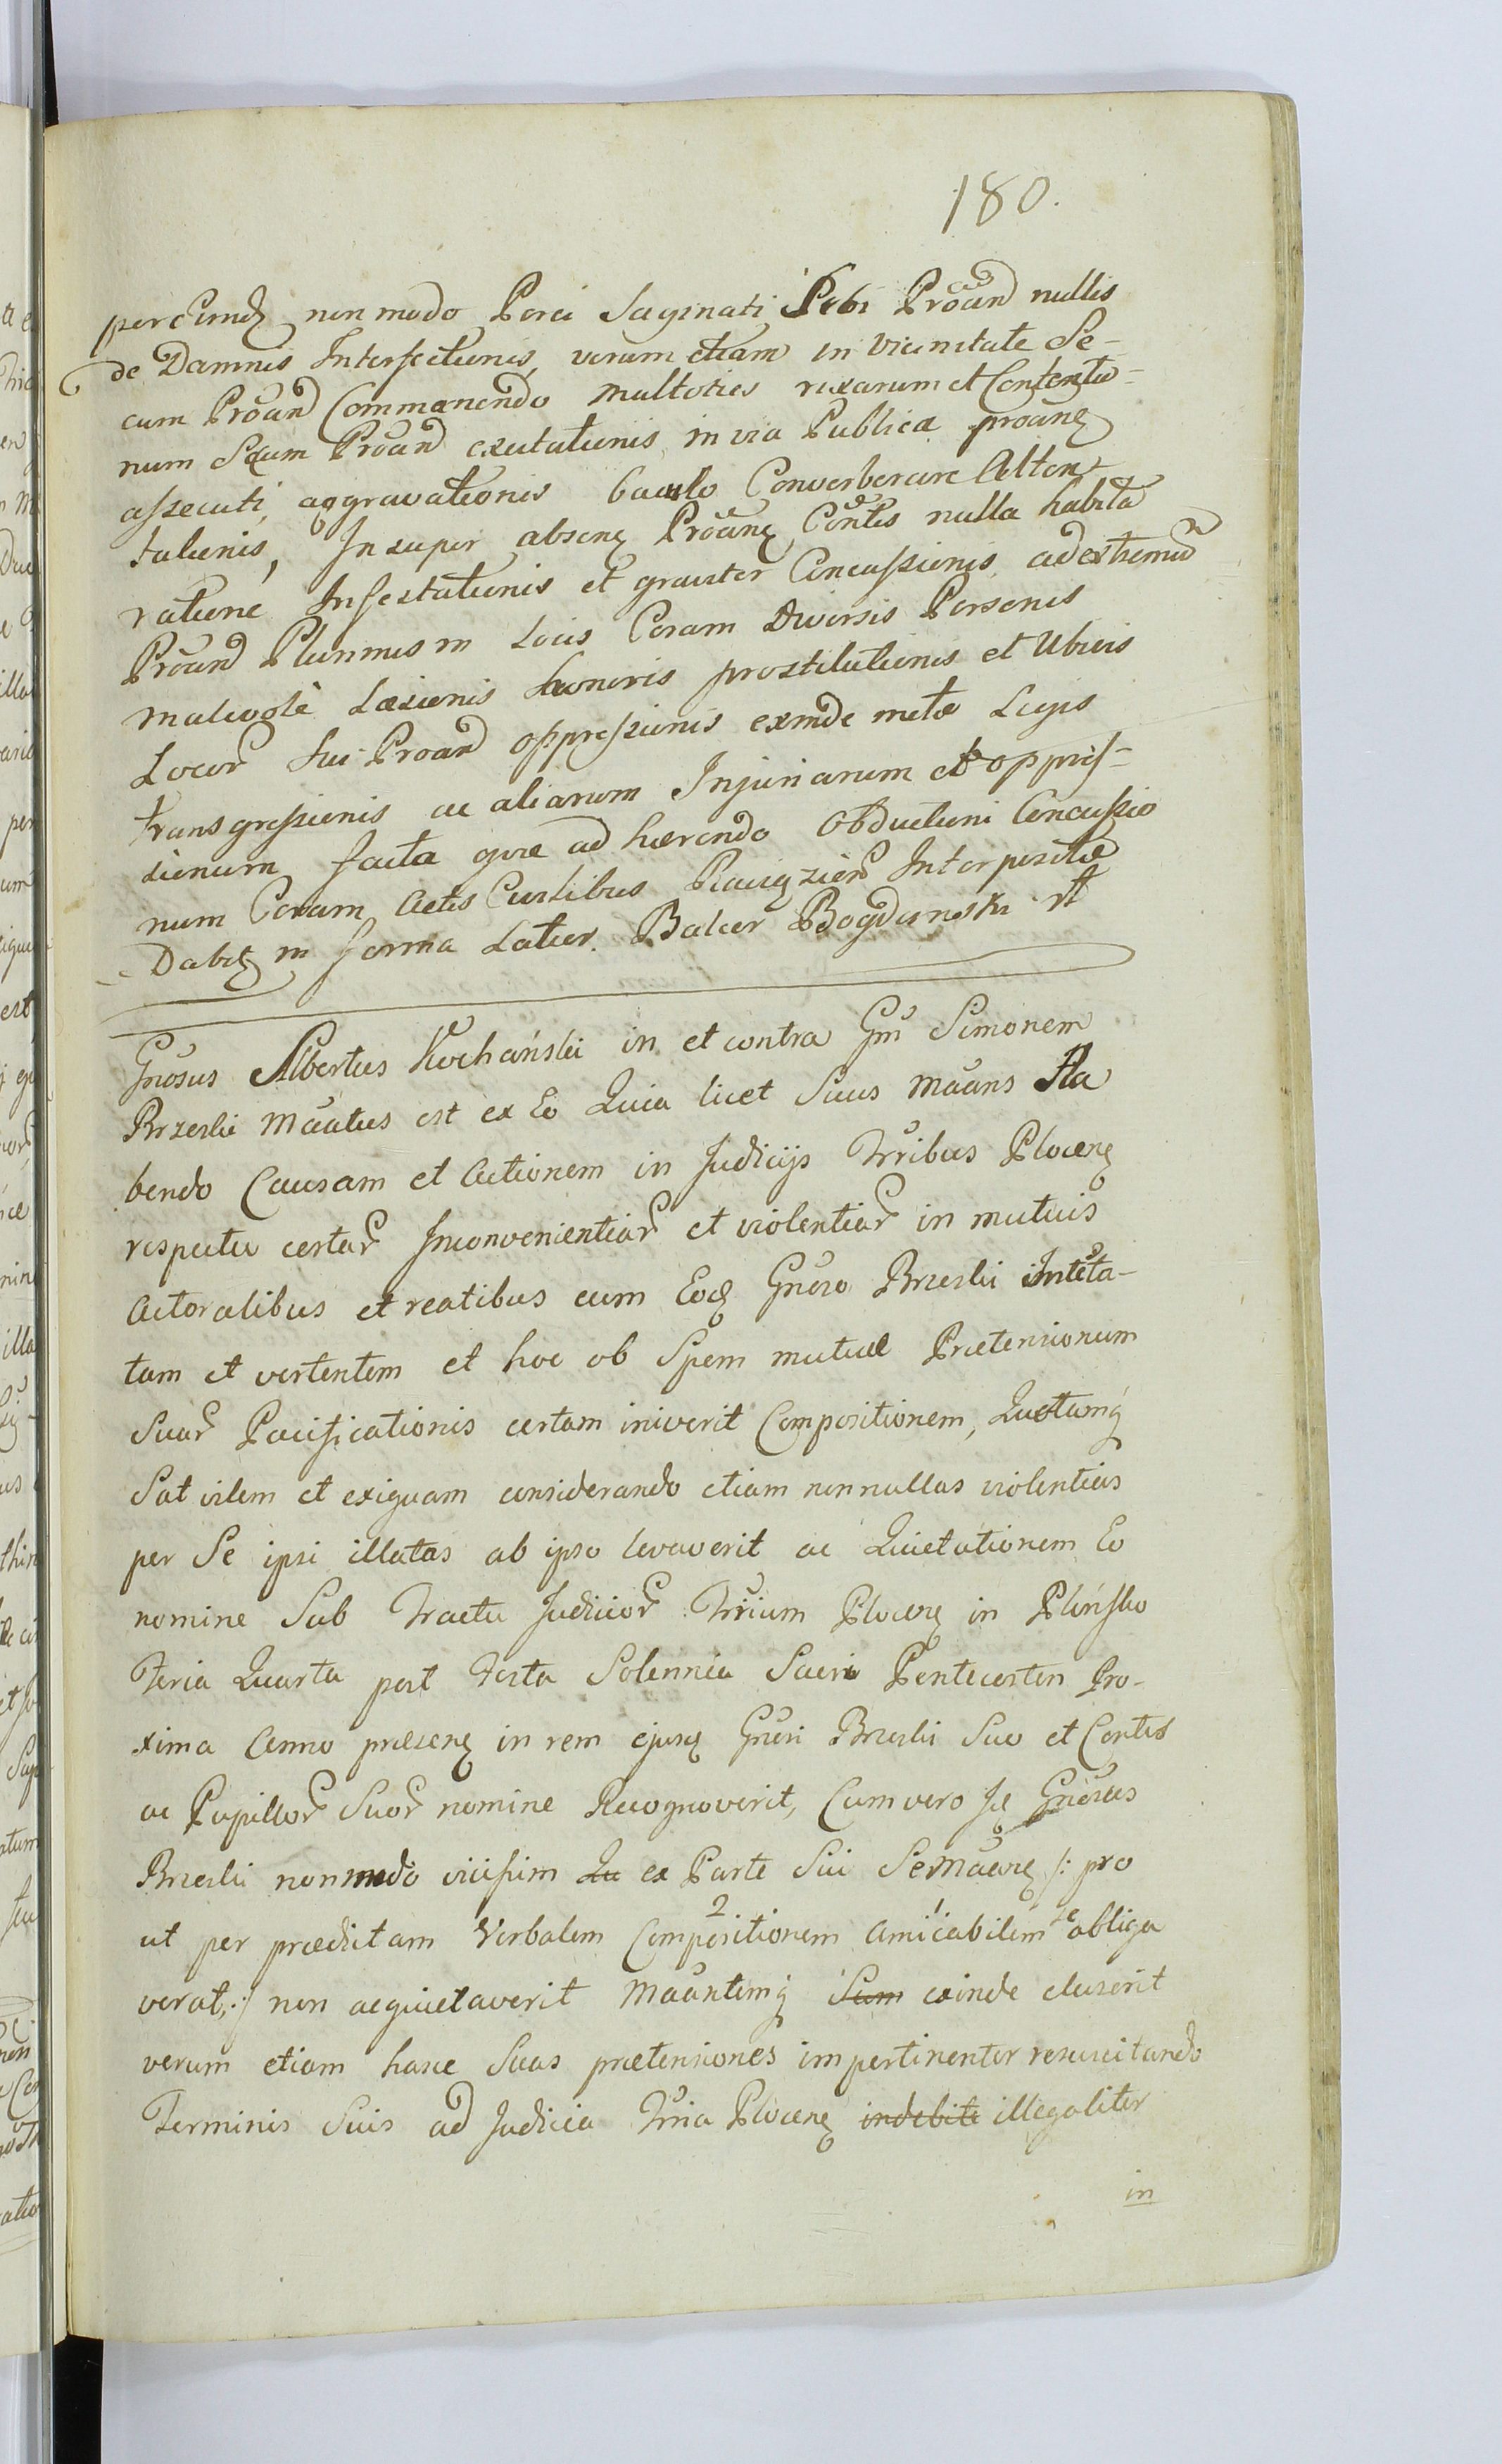 180.
per eundẽ non modo Porci Saginati Sibi Proãnd nullis
de Damnis Interfectionis, verum etiam in Vicinitate Se-
cum Proãnd Commanendo multoties rixarum et Contentio-
num Secum Proãnd excitationis, in via Publica proãnẽ
assecuti, aggravationis baculo Converberare Atten-
tationis, Insuper absenẽ Proãnẽ Cõntis nulla habita
ratione Infestationis et graviter Concussionis, ad extremũ
Proãnd Plurimis in Locis Coram Diversis Personis
malevole Læsionis honoris prostitutionis et Ubivis
Locor̃ Sui Proãnd oppressionis exinde metæ Legis
transgressionis ac aliarum Injuriarum et oppres-
sionum facta quæ adhærendo Obductioni Concussio
num Coram Actis Castrĩbus Raciązien̄ Interpositæ
Dabitẽ in forma Latior. Balcer Bogdanski
Gnõsus Albertus Kochański in et contra Gnũ Simonem
Brzeski Mãatus est ex Eo Quia licet Suus Mãans Ha
bendo Causam et Actionem in Judicijs Tr̃ribus Plocenẽ
respectu certar̃ Inconvenientiar̃ et violentiar̃ in mutuis
Actoralibus et reatibus cum Eodẽ Gnõso Brzeski intẽta-
tam et vertentem et hoc ob Spem mutuæ Prætensionum
Suar̃ Pacificationis certam iniverit Compositionem, Quotamq̃
Sat vilem et exiguam considerando etiam nonnullas violentias
per Se ipsi illatas ab ipso levaverit ac Quietationem Eo
nomine Sub Tractu Judicior̃ Tr̃rium Plocenẽ in Płońsko
Feria Quarta post Festa Solennia Sacri Pentecosten Pro-
xima Anno præsenẽ in rem ejusẽ Gnõsi Brzeski Suo et Contis
ac Pupillor̃ Suor̃ nomine Recognoverit, Cum vero Iẽ Gnõsus
Brzeski non modo vicissim Qu ex Parte Sui Se Mãanẽ /: pro
ut per prædictam Verbalem Compositionem 2 amicabilem 1 se obliga
verat, :/ non acquietaverit Mãantemq̃ Suum exinde eluserit
verum etiam hasce Suas prætensiones impertinenter resuscitando
Terminis Suis ad Judicia Tr̃ria Plocenẽ indebite illegaliter
in